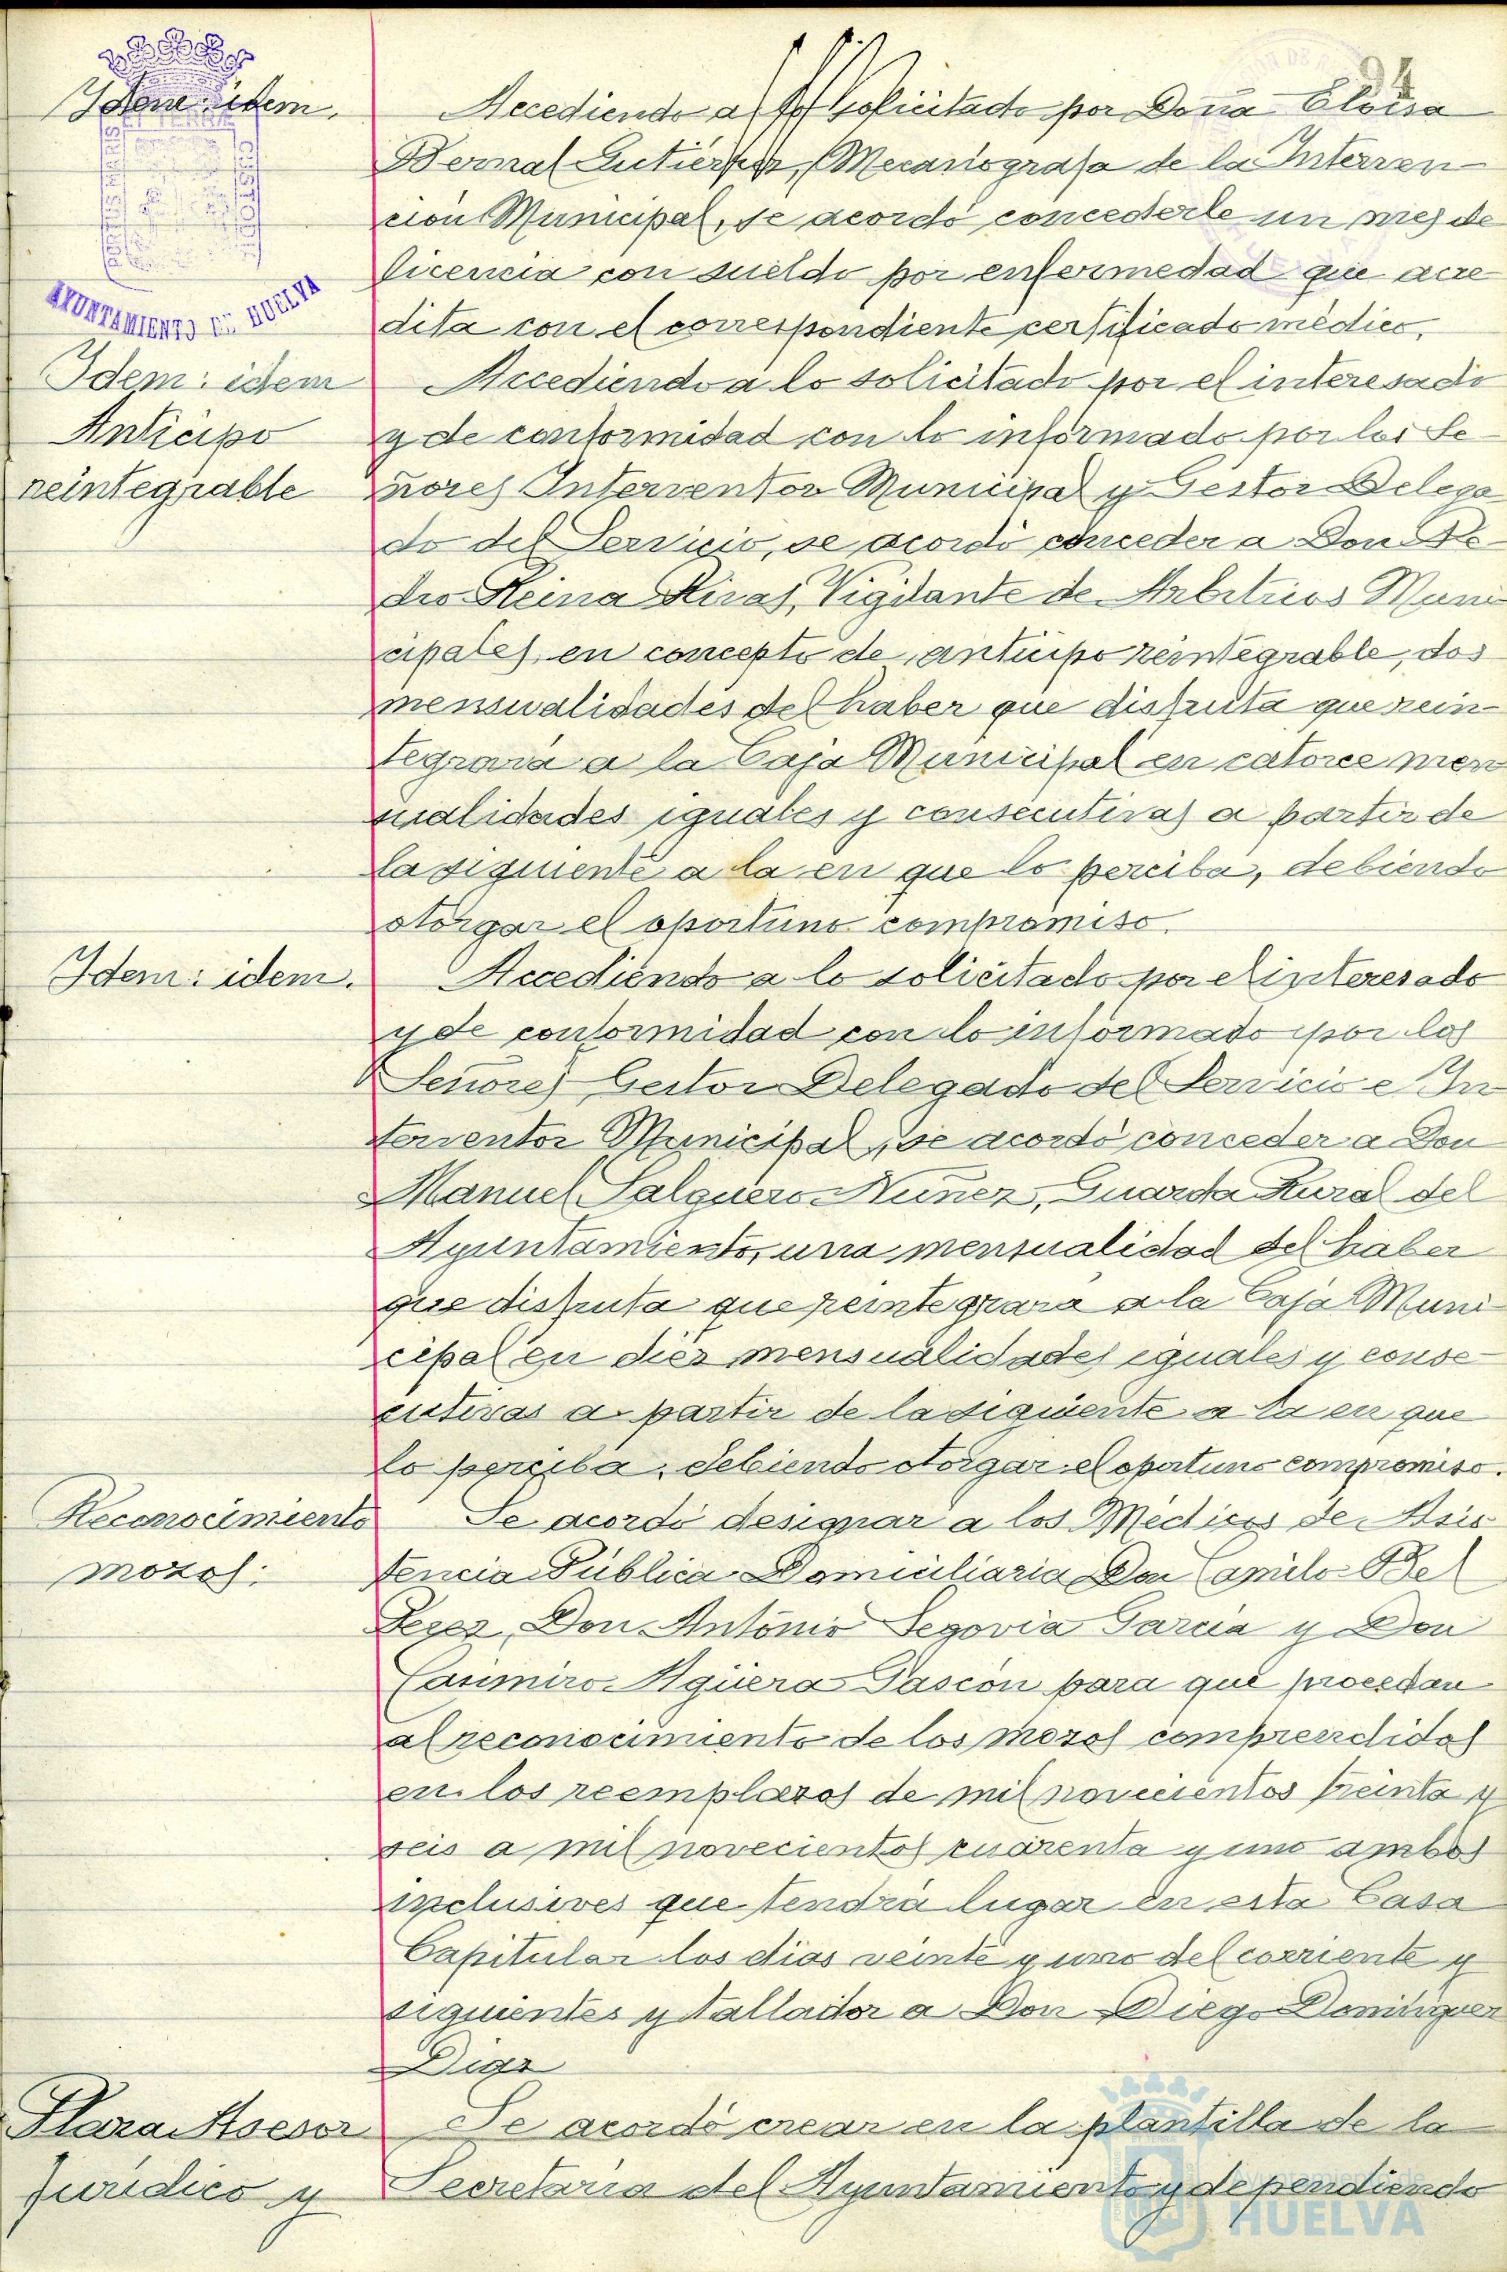 94
Idem: idem.
Accediendo a lo solicitado por Doña Eloisa
Bernal Gutierrez, Mecanógrafa de la Interven
ción Municipal, se acordó concederle un mes de
licencia con sueldo por enfermedad que acre
dita con el correspondiente certificado médico.
AYUNTAMIENTO DE HUELVA
Idem: idem
Anticipo
reintegrable
Accediendo a lo solicitado por el interesado
y de conformidad con lo informado por los Se-
ñores Interventor Municipal y Gestor Delega-
do del Servicio, se acordó conceder a Don Pe-
dro Reina Rivas, Vigilante de Arbitrios Muni
cipales, en concepto de anticipo reintegrable, dos
mensualidades del haber que disfruta que rein-
tegrará a la Caja Municipal en catorce men
sualidades iguales y consecutivas a partir de
la siguiente a la en que lo perciba, debiendo
otorgar el oportuno compromiso.
Idem: idem.
Accediendo a lo solicitado por el interesado
y de conformidad con lo informado por los
Señores Gestor Delegado del Servicio e In
terventor Municipal, se acordó conceder a Don
Manuel Salguero Nuñez, Guarda Rural del
Ayuntamiento, una mensualidad del haber
que disfruta que reintegrará a la Caja Muni-
cipal en diez mensualidades iguales y conse-
cutivas a partir de la siguiente a la en que
lo perciba, debiendo otorgar el oportuno compromiso.
Reconocimiento
mozos:
Se acordó designar a los Médicos de Asis-
tencia Pública Domiciliaria Don Camilo Bel
Perez, Don Antonio Segovia García y Don
Casimiro Agüera Pascón para que procedan
al reconocimiento de los mozos comprendidos
en los reemplazos de mil novecientos treinta y
seis a mil novecientos cuarenta y uno ambos
inclusives que tendrá lugar en esta Casa
Capitular los dias veinte y uno del corriente y
siguientes y tallador a Don Diego Dominguez
Diaz
Plaza Asesor
Jurídico y
Se acordó crear en la plantilla de la
Secretaría del Ayuntamiento y dependiendo
Ayuntamiento de
HUELVA